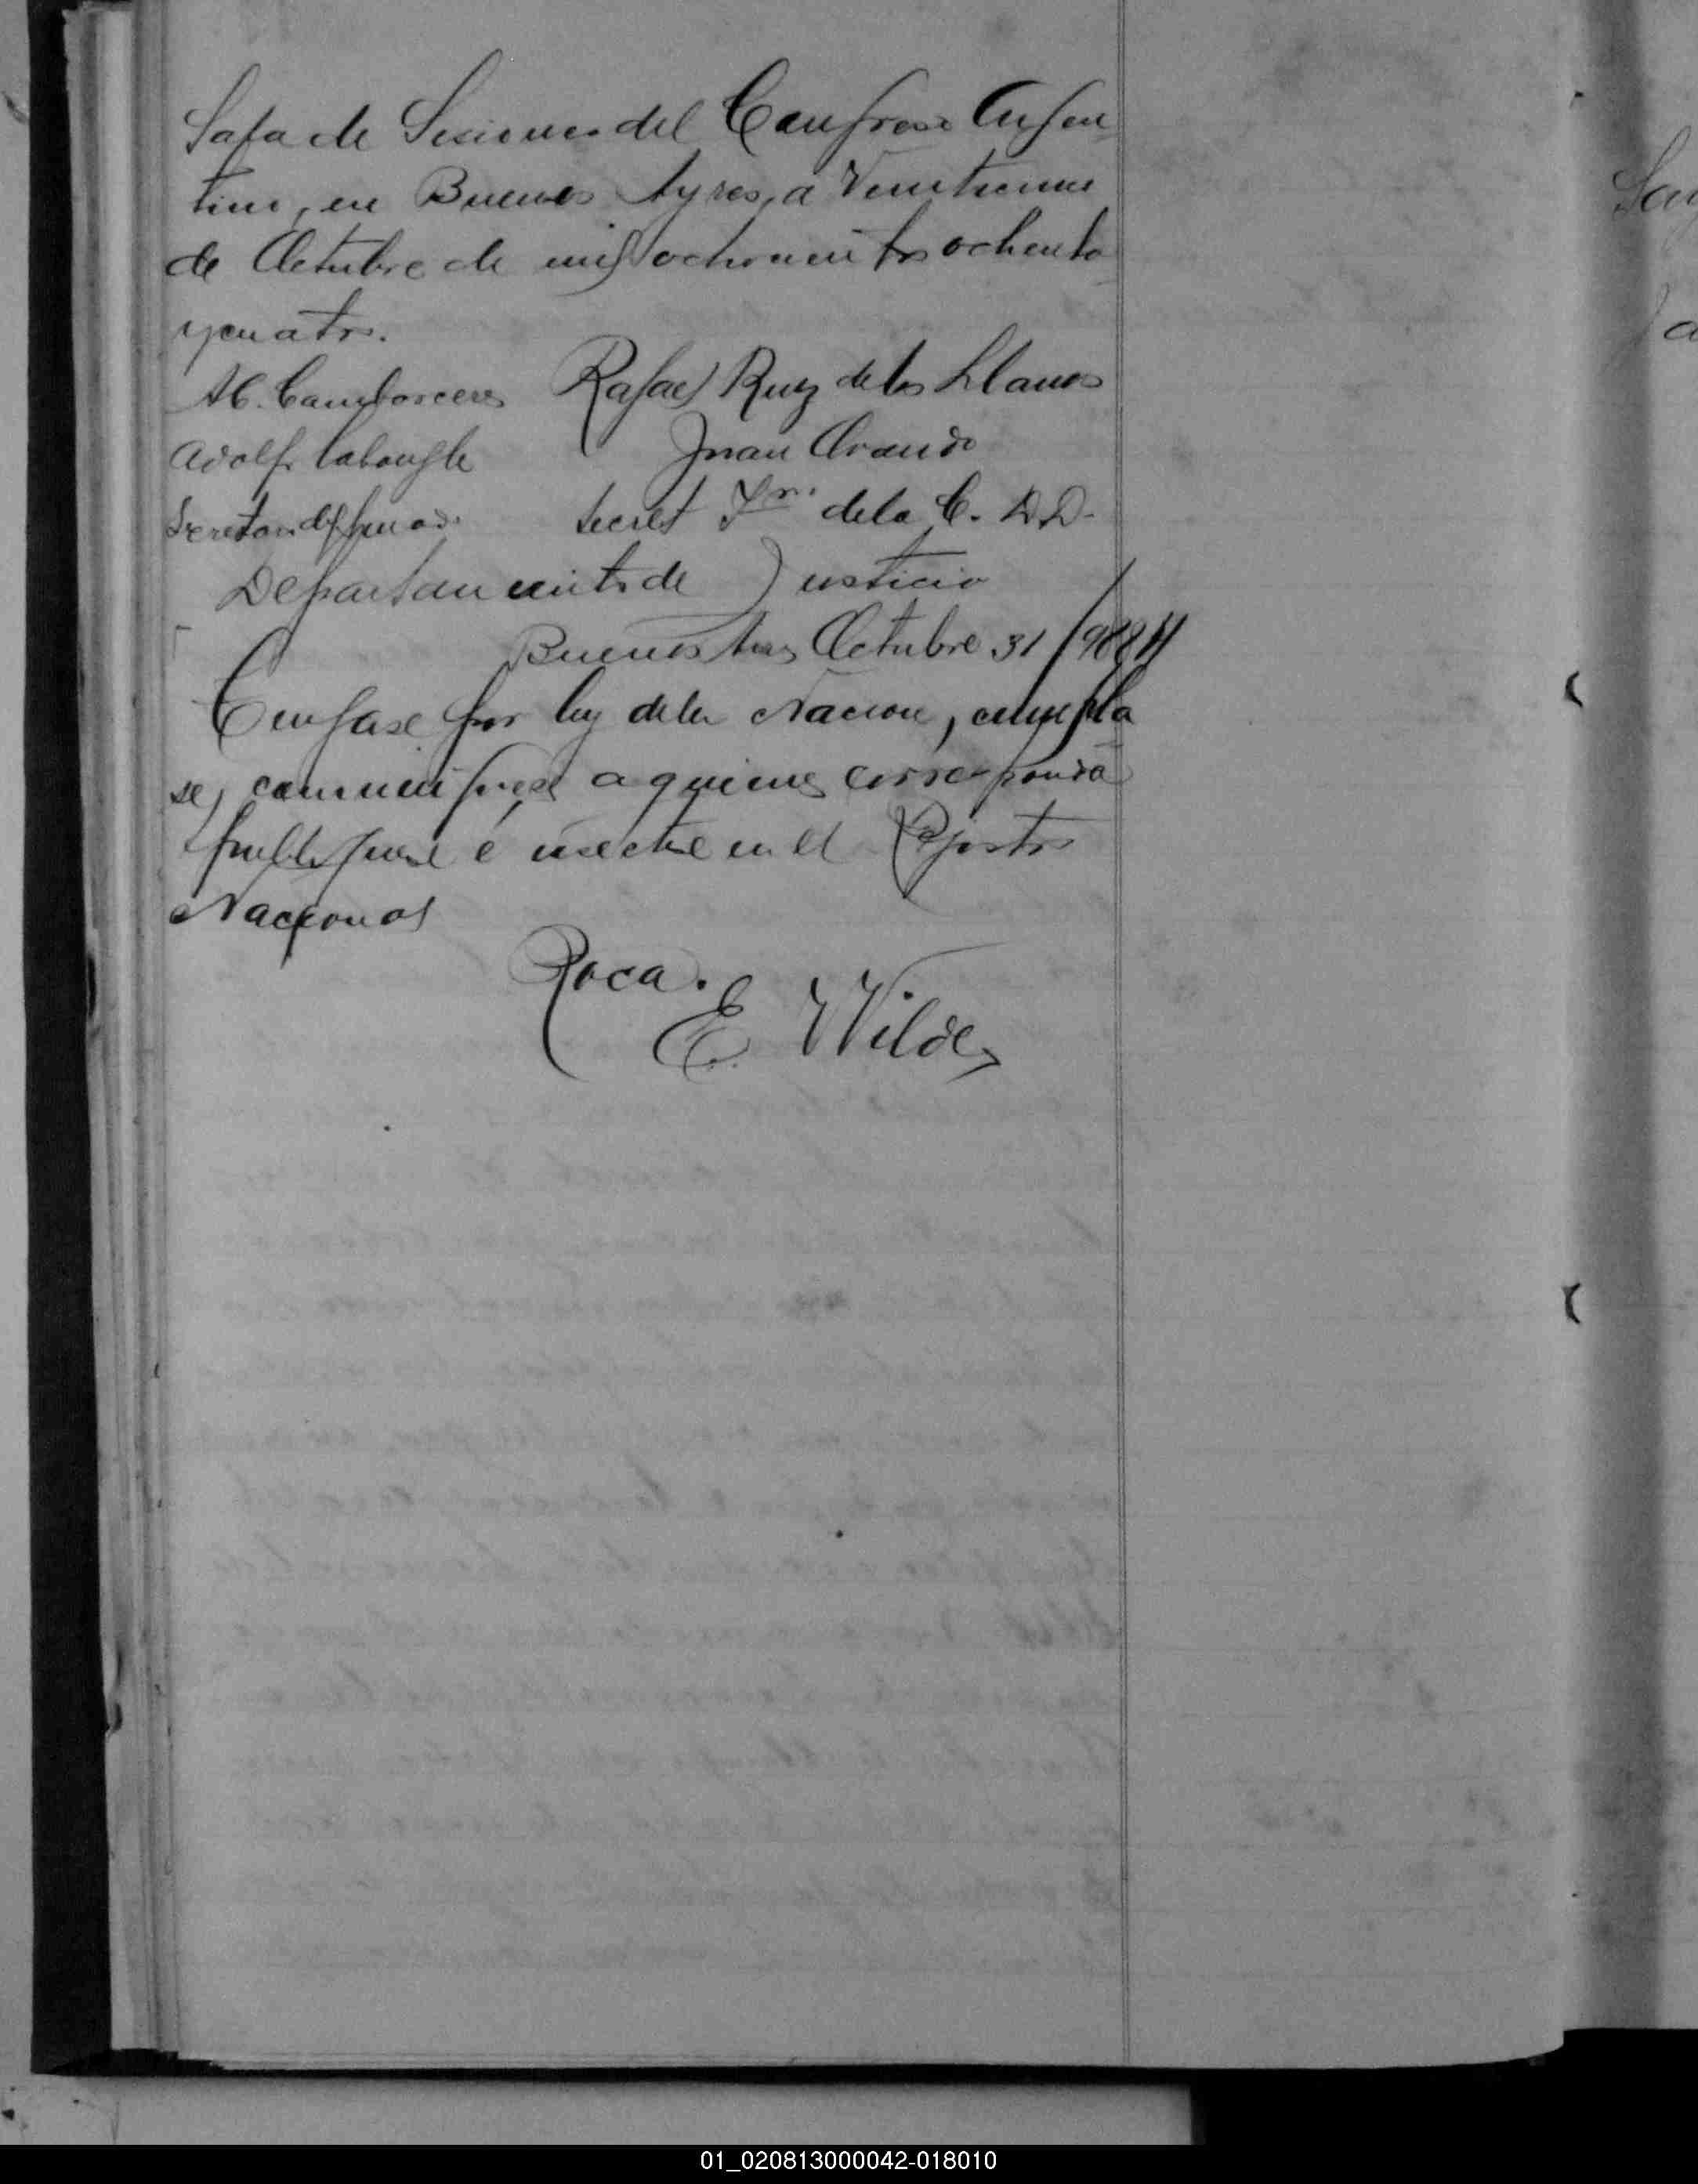 Sala de Sesiones del Congreso Argen
tino, en Buenos Ayres, a Veintinueve
de Octubre de mil ochocientos ochenta
y cuatro.
A C. Cambaceres Rafael Ruiz de los Llanos
Adolfo Labougle Juan Ovando
Secretario del Senado Secret de la C. D.D.
Departamento de Justicia
Buenos Aires Octubre 31/1884
Tengase por ley de la Nacion, cumpla
se, comuniquese a quienes corresponda
publiquese é insertese en el Rejistro
Nacional
Roca.
E Wilde
San
01_020813000042-018010